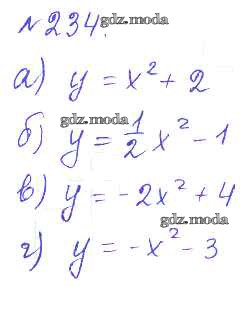 №234.
gdz.moda
а) y = x² + 2
gdz.moda
б) y = 1/2 x² - 1
в) y = -2x² + 4
gdz.moda
г) y = -x² - 3